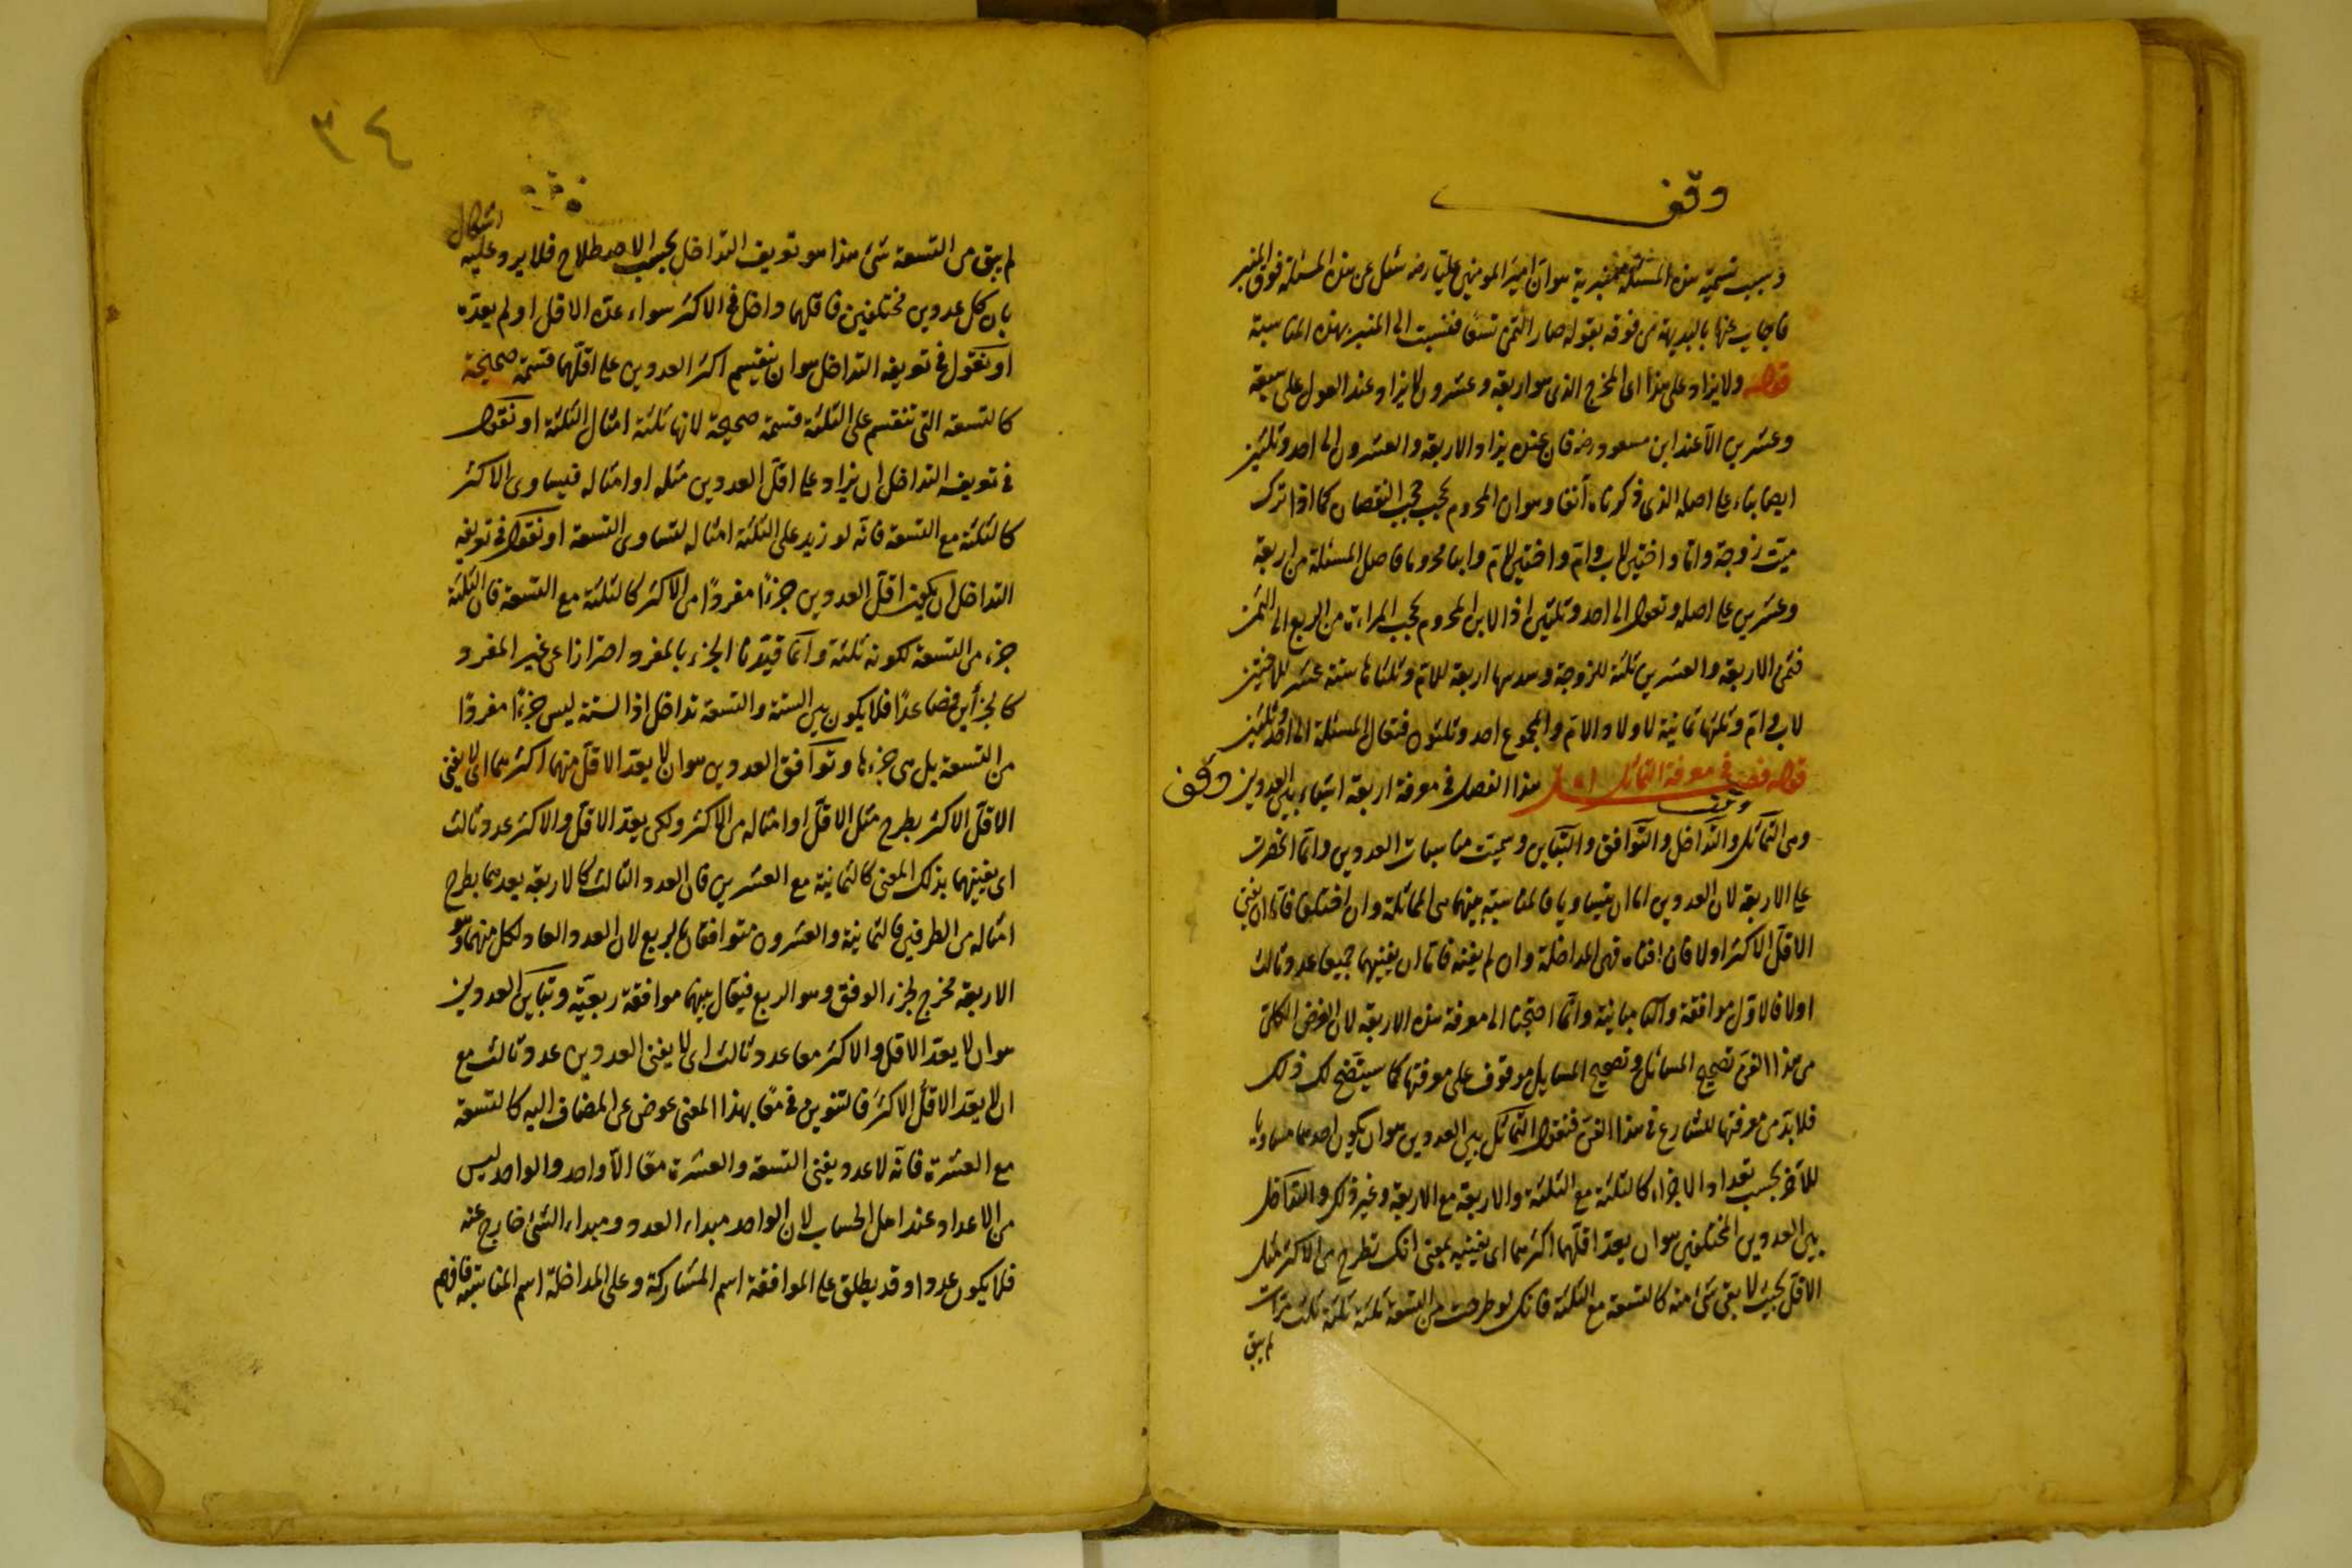 وقف
وسبب تسمية هذه المسئلة منبرية هو ان امير المؤمنين عليا رضه سئل عن هذه المسئلة فوق المنبر
فاجاب عنها بالبديهة من فوقه بقوله صار الثمن تسعا فنسبت الى المنبر بهذه المناسبة
قوله ولا يزاد على هذا اى المخرج الذى هو اربعة وعشرون لا يزاد عند العول على سبعة
وعشرين الا عند ابن مسعود رضه فان عنده يزاد الاربعة والعشرون الى احد وثلثين
ايضا بناء على اصله الذى ذكرناه آنفا وهو ان المحروم يحجب حجب النقصان كما اذا ترك
ميت زوجة واما واختين لاب وام واختين لام وابنا محروما فاصل المسئلة من اربعة
وعشرين على اصله وتعول الى احد وثلثين اذ الابن المحروم يحجب المراءة من الربع الى الثمن
فثمن الاربعة والعشرين ثلثة للزوجة وسدسها اربعة للام وثلثاها ستة عشر للاختين
لاب وام وثلثها ثمانية لاولاد الام والمجموع احد وثلثون فتعال المسئلة الى احد وثلثين
قوله فصل فى معرفة التماثل هذا الفصل فى معرفة اربعة اشياء بين العددين وقف
وقف
وهى التماثل والتداخل والتوافق والتباين وسميت مناسبات العددين وانما انحصرت
على الاربعة لان العددين اما ان يتساويا فالمناسبة بينهما هى المماثلة وان اختلفا فاما ان يفنى
الاقل الاكثر اولا فان افناه فهى المداخلة وان لم يفنه فاما ان يفنيهما جميعا عدد ثالث
اولا فالاول موافقة والثا مباينة وانما احتجنا الى معرفة هذه الاربعة لان الغرض الكلى
من هذا الفن تصحيح المسائل وتصحيح المسايل موقوف على معرفتها كما سيتضح لك ذلك
فلا بد من معرفتها للشارع فى هذا الفن فنقول التماثل بين العددين هو ان يكون احدهما مساويا
للآخر بحسب تعداد الاجزاء كالثلثة مع الثلثة والاربعة مع الاربعة وغير ذلك والتداخل
بين العددين المختلفين هو ان يعد اقلهما اكثرهما اى يفنيه بمعنى انك تطرح من الاكثر مثل
الاقل بحيث لا يبقى شئ منه كالتسعة مع الثلثة فانك لو طرحت من التسعة ثلثة ثلثة ثلث مرات
لم يبق
٣٤
لم يبق من التسعة شئ هذا هو تعريف التداخل بحسب الاصطلاح فلا يرد عليه اشكال
بان كل عددين مختلفين فاقلهما داخل فى الاكثر سواء عده الاقل او لم يعده
او نقول فى تعريف التداخل هو ان ينقسم اكثر العددين على اقلهما قسمة صحيحة
كالتسعة التى تنقسم على الثلثة قسمة صحيحة لانها ثلثة امثال الثلثة او نقول
فى تعريف التداخل ان يزاد على اقل العددين مثله او امثاله فيساوى الاكثر
كالثلثة مع التسعة فانه لو زيد على الثلثة امثاله لتساوى التسعة او نقول فى تعريف
التداخل ان يكون اقل العددين جزءًا مفردًا من الاكثر كالثلثة مع التسعة فان الثلثة
جزء من التسعة لكونه ثلثه وانما قيدنا الجزء بالمفرد احترازا عن غير المفرد
كالجزأين فصاعدًا فلا يكون بين الستة والتسعة تداخل اذ الستة ليس جزءًا مفردًا
من التسعة بل هى جزءها وتوافق العددين هو ان لا يعد الاقل منهما اكثرهما اى لا يفنى
الاقل الاكثر بطرح مثل الاقل او امثاله من الاكثر ولكن يعد الاقل والاكثر عدد ثالث
اى يفنيهما بذلك المعنى كالثمانية مع العشرين فان العدد الثالث كالاربعة يعدهما بطرح
امثاله من الطرفين فالثمانية والعشرون متوافقان بالربع لان العدد العاد لكل منهما وهو
الاربعة مخرج لجزء الوفق وهو الربع فيقال بينهما موافقة ربعية وتباين العددين
هو ان لا يعد الاقل والاكثر معا عدد ثالث اى لا يفنى العددين عدد ثالث مع
ان لا يعد الاقل الاكثر فالتنوين فى معًا بهذا المعنى عوض عن المضاف اليه كالتسعة
مع العشرة فانه لا عدد يفنى التسعة والعشرة معًا الا واحد والواحد ليس
من الاعداد عند اهل الحساب لان الواحد مبداء العدد ومبداء الشئ خارج عنه
فلا يكون عددا وقد يطلق على الموافقة اسم المشاركة وعلى المداخلة اسم المناسبة فافهم